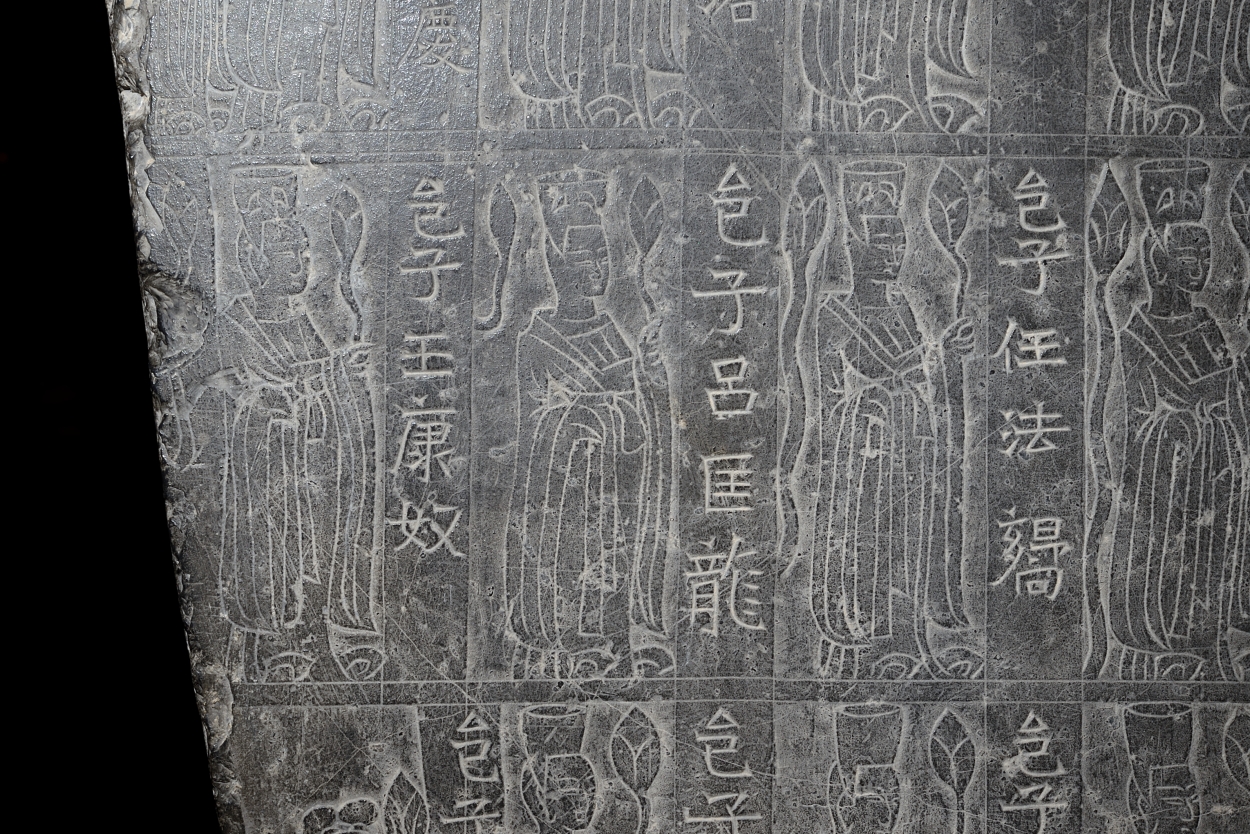 慶
邑子任法
邑子呂匡龍
邑子王康奴
邑子
邑子
邑子